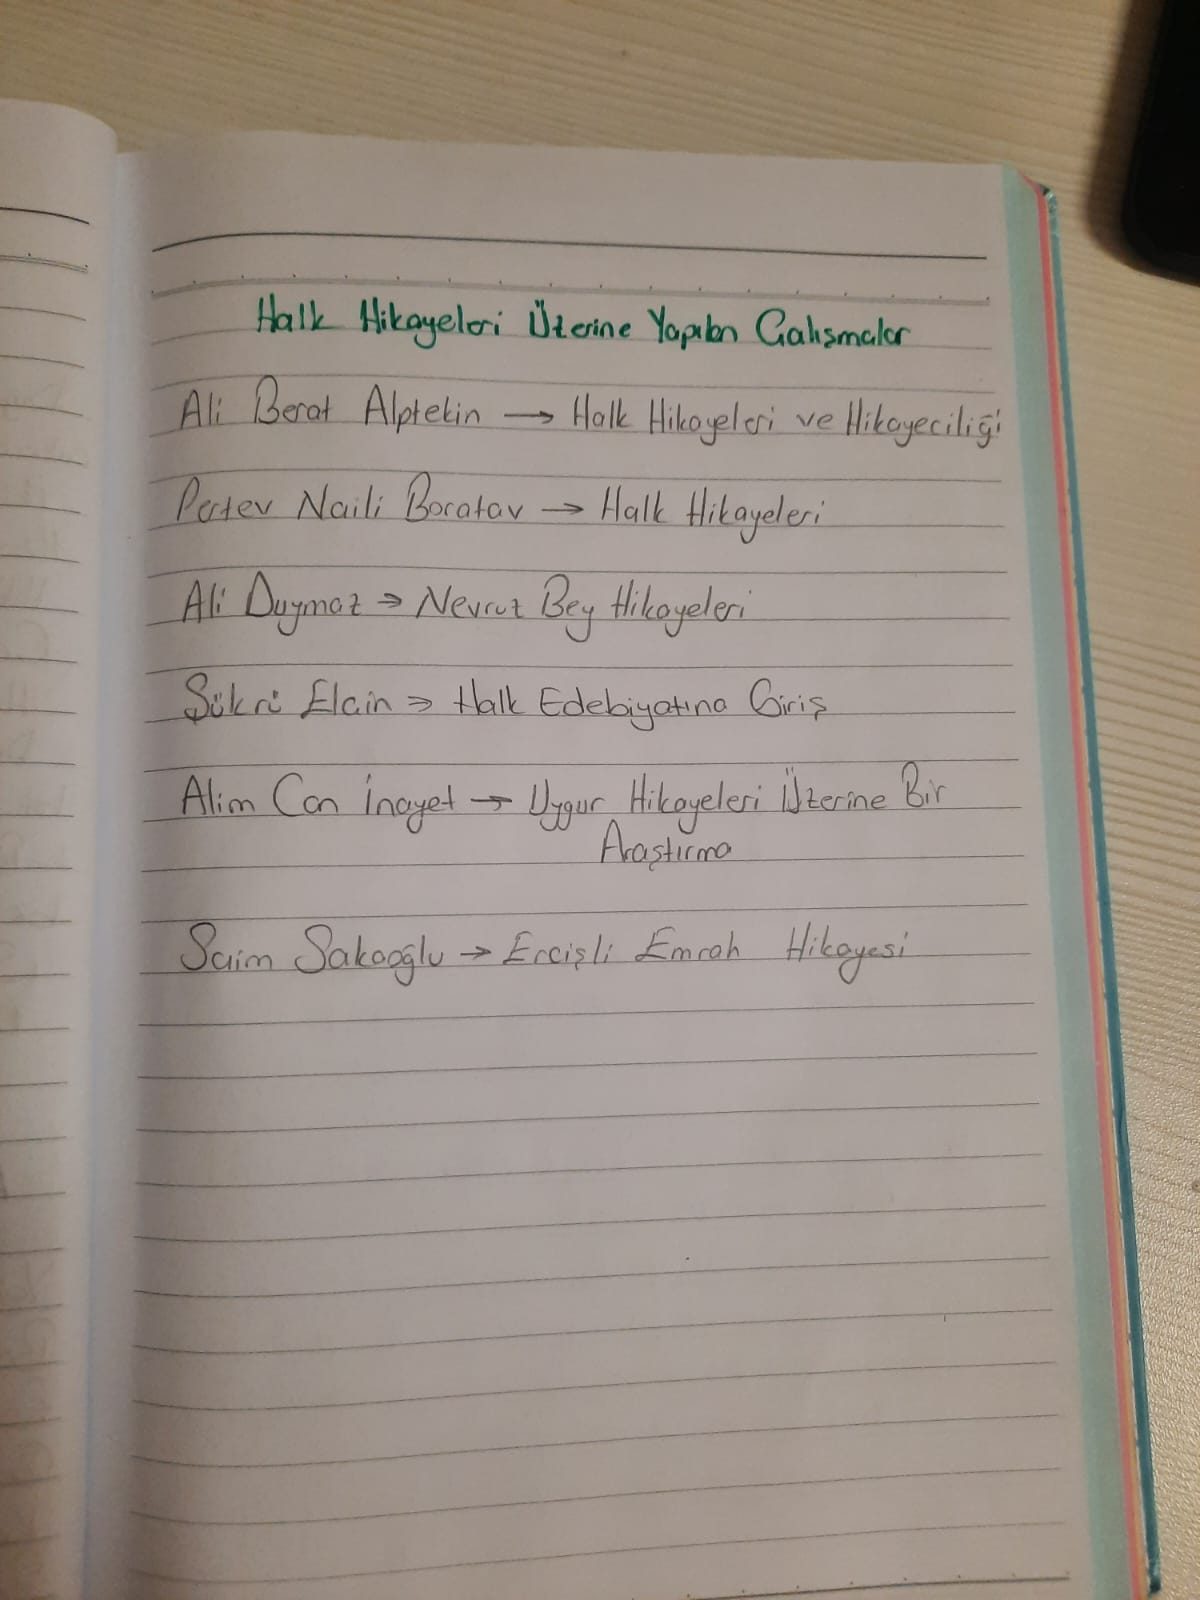 Halk Hikayeleri Üzerine Yapılan Çalışmalar
Ali Berat Alptekin → Halk Hikayeleri ve Hikayeciliği
Pertev Naili Boratav → Halk Hikayeleri
Ali Duymaz → Nevruz Bey Hikayeleri
Şükrü Elcin → Halk Edebiyatına Giriş
Alim Can İnayet → Uygur Hikayeleri Üzerine Bir
Araştırma
Saim Sakaoğlu → Ercişli Emrah Hikayesi